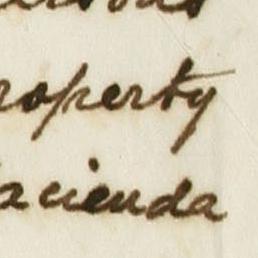 roperty
acienda